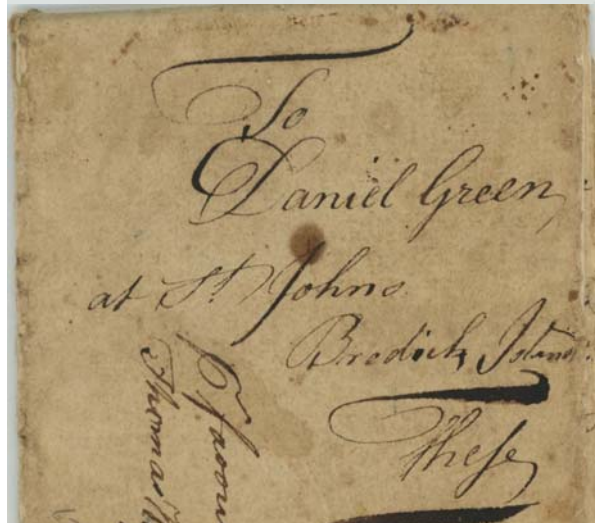 To
Daniel Green,
at St. Johns
Brodick Island
These
Favour
Thomas